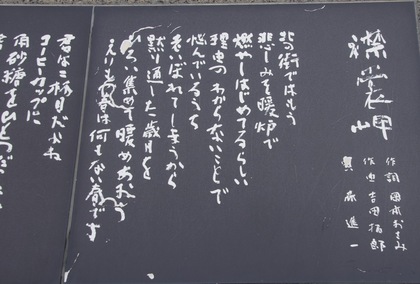 襟裳岬
作詞 岡本おさみ
作曲 吉田拓郎
森進一
北の街ではもう
悲しみを暖炉で
燃やしはじめてるらしい
理由のわからないことで
悩んでいるうち
老いぼれてしまうから
黙り通した歳月を
ひろい集めて暖めあおう
えりもの春は何もない春です
君は二杯目だよね
コーヒーカップに
角砂糖をひとつだ